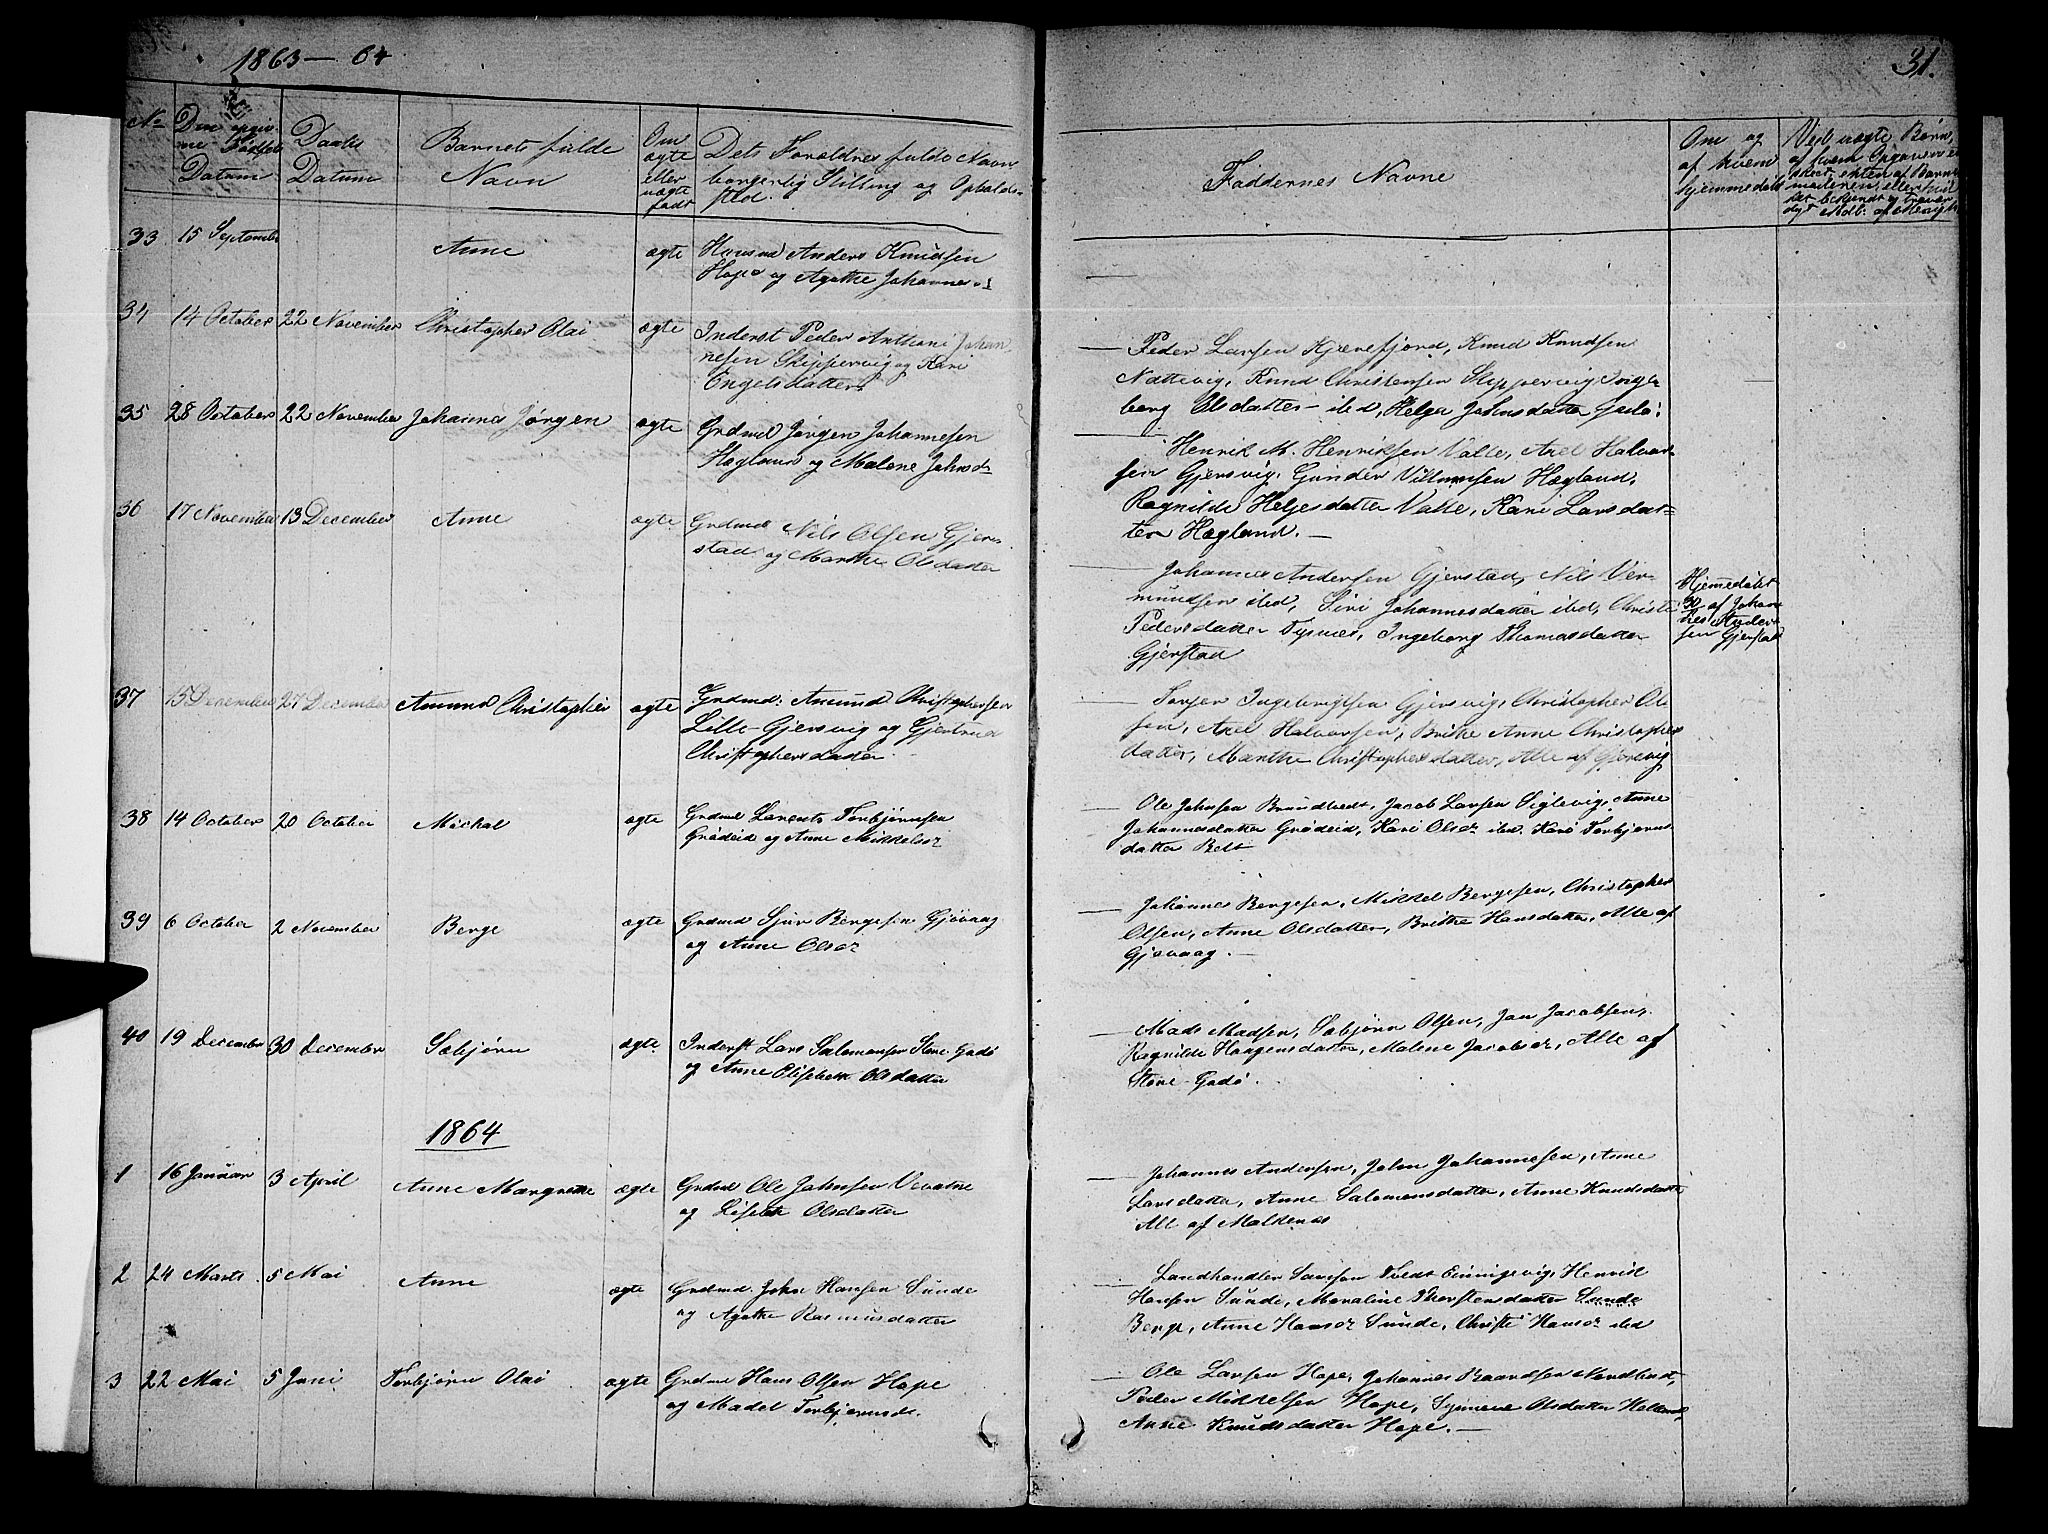 1863 — 64
31.
No
Den opgiv-
ne Fødsels
Datum
Daabs
Datum
Barnets fulde
Navn
Om
ægte
eller
uægte
født
Dets Forældres fulde Navn
borgerlig Stilling og Opholds-
sted.
Faddernes Navne
Om og
af hvem
hjemmedøbt
Ved uægte Børn,
af hvem Opgaven er
skeet, enten af Barne-
moderen, eller hvil
33 15 September Anne ægte Huusmd Anders Knudsen
Hope og Agathe Johannesd
34 14 October 22 November Christopher Olai ægte Inderst Peder Anthoni Johan
nesen Skippervig og Kari
Engelsdatter
— Peder Larsen Kjærefjord, Knud Knudsen
Nattevig, Knud Christensen Skippervig, Inge-
borg Olsdatter ibid, Helga Johnsdatter Gadø.
35 28 October 22 November Johannes Jørgen ægte Grdmd Jørgen Johannesen
Hægland og Malene Johnsd
— Henrik M. Henriksen Valle, Axel Halvor
sen Gjersvig, Gunder Villumsen Hægland,
Ragnilde Helgesdatter Valle, Kari Larsdat-
ter Hægland. —
36 17 November 13 December Anne ægte Grdmd Nils Olsen Gjer-
stad og Marthe Olsdatter
— Johannes Andersen Gjerstad, Nils Ver-
mundsen ibid, Siri Johannesdatter ibid, Christi
Pedersdatter Tysnes, Ingeborg Thomasdatter
Gjerstad
Hjemedøbt
af Johan
nes Ander
sen Gjerstad
37 15 December 27 December Amund Christopher ægte Grdmd: Amund Christophersen
Lille-Gjersvig og Gjertrud
Christophersdatter
— Torger Ingebrigtsen Gjersvig, Christopher Ol-
sen, Axel Halvorsen, Brithe Anne Christophers
datter, Marthe Christophersdatter, Alle af Gjersvig
38 14 October 20 October Michal ægte Grdmd Larents Torbjørnsen
Grødeid og Anne Mikkelsdr
— Ole Johnsen Brundtvedt, Jacob Larsen Siglevig, Anne
Johannesdatter Grødeid, Kari Olsdr ibid Kari Torbjørns
datter Belt
39 6 October 2 November Berge ægte Grdmd Sjur Bergesen Gjøvaag
og Anne Olsdr
— Johannes Bergesen, Mikkel Bergesen, Christopher
Olsen, Anne Olsdatter, Brithe Hansdatter, Alle af
Gjøvaag. —
40 19 December 30 December Sæbjørn ægte Inderst Lars Salomonsen Store-Godø
og Anne Elisabeth Olsdatter
— Mads Madsen, Sæbjørn Olsen, Jan Jacobsen,
Ragnilde Haagensdatter, Malene Jacobsdr, Alle af
Store-Godø.
1864
1 16 Januar 3 April Anne Margrethe ægte Grdmd Ole Johnsen Vevatne
og Lisbeth Olsdatter
Johannes Andersen, John Johannesen, Anne
Larsdatter, Anne Salomonsdatter, Anne Knudsdatter
Alle af Malkenes
2 24 Marts 5 Mai Anne ægte Grdmd. John Hansen Sunde
og Agathe Rasmusdatter
— Landhandler Samson Tvedt Einingevig, Henrik
Hansen Sunde, Maraline Thorstensdatter Sunde
Berge, Anne Hansdr Sunde, Christi Hansdr ibid
3 22 Mai 5 Juni Torbjørn Olai ægte Grdmd Hans Olsen Hope
og Madel Torbjørnsd.
— Ole Larsen Hope, Johannes Baardsen Nordtvet,
Peder Mikkelsen Hope, Synneve Olsdatter Helland,
Anne Knudsdatter Hope. —